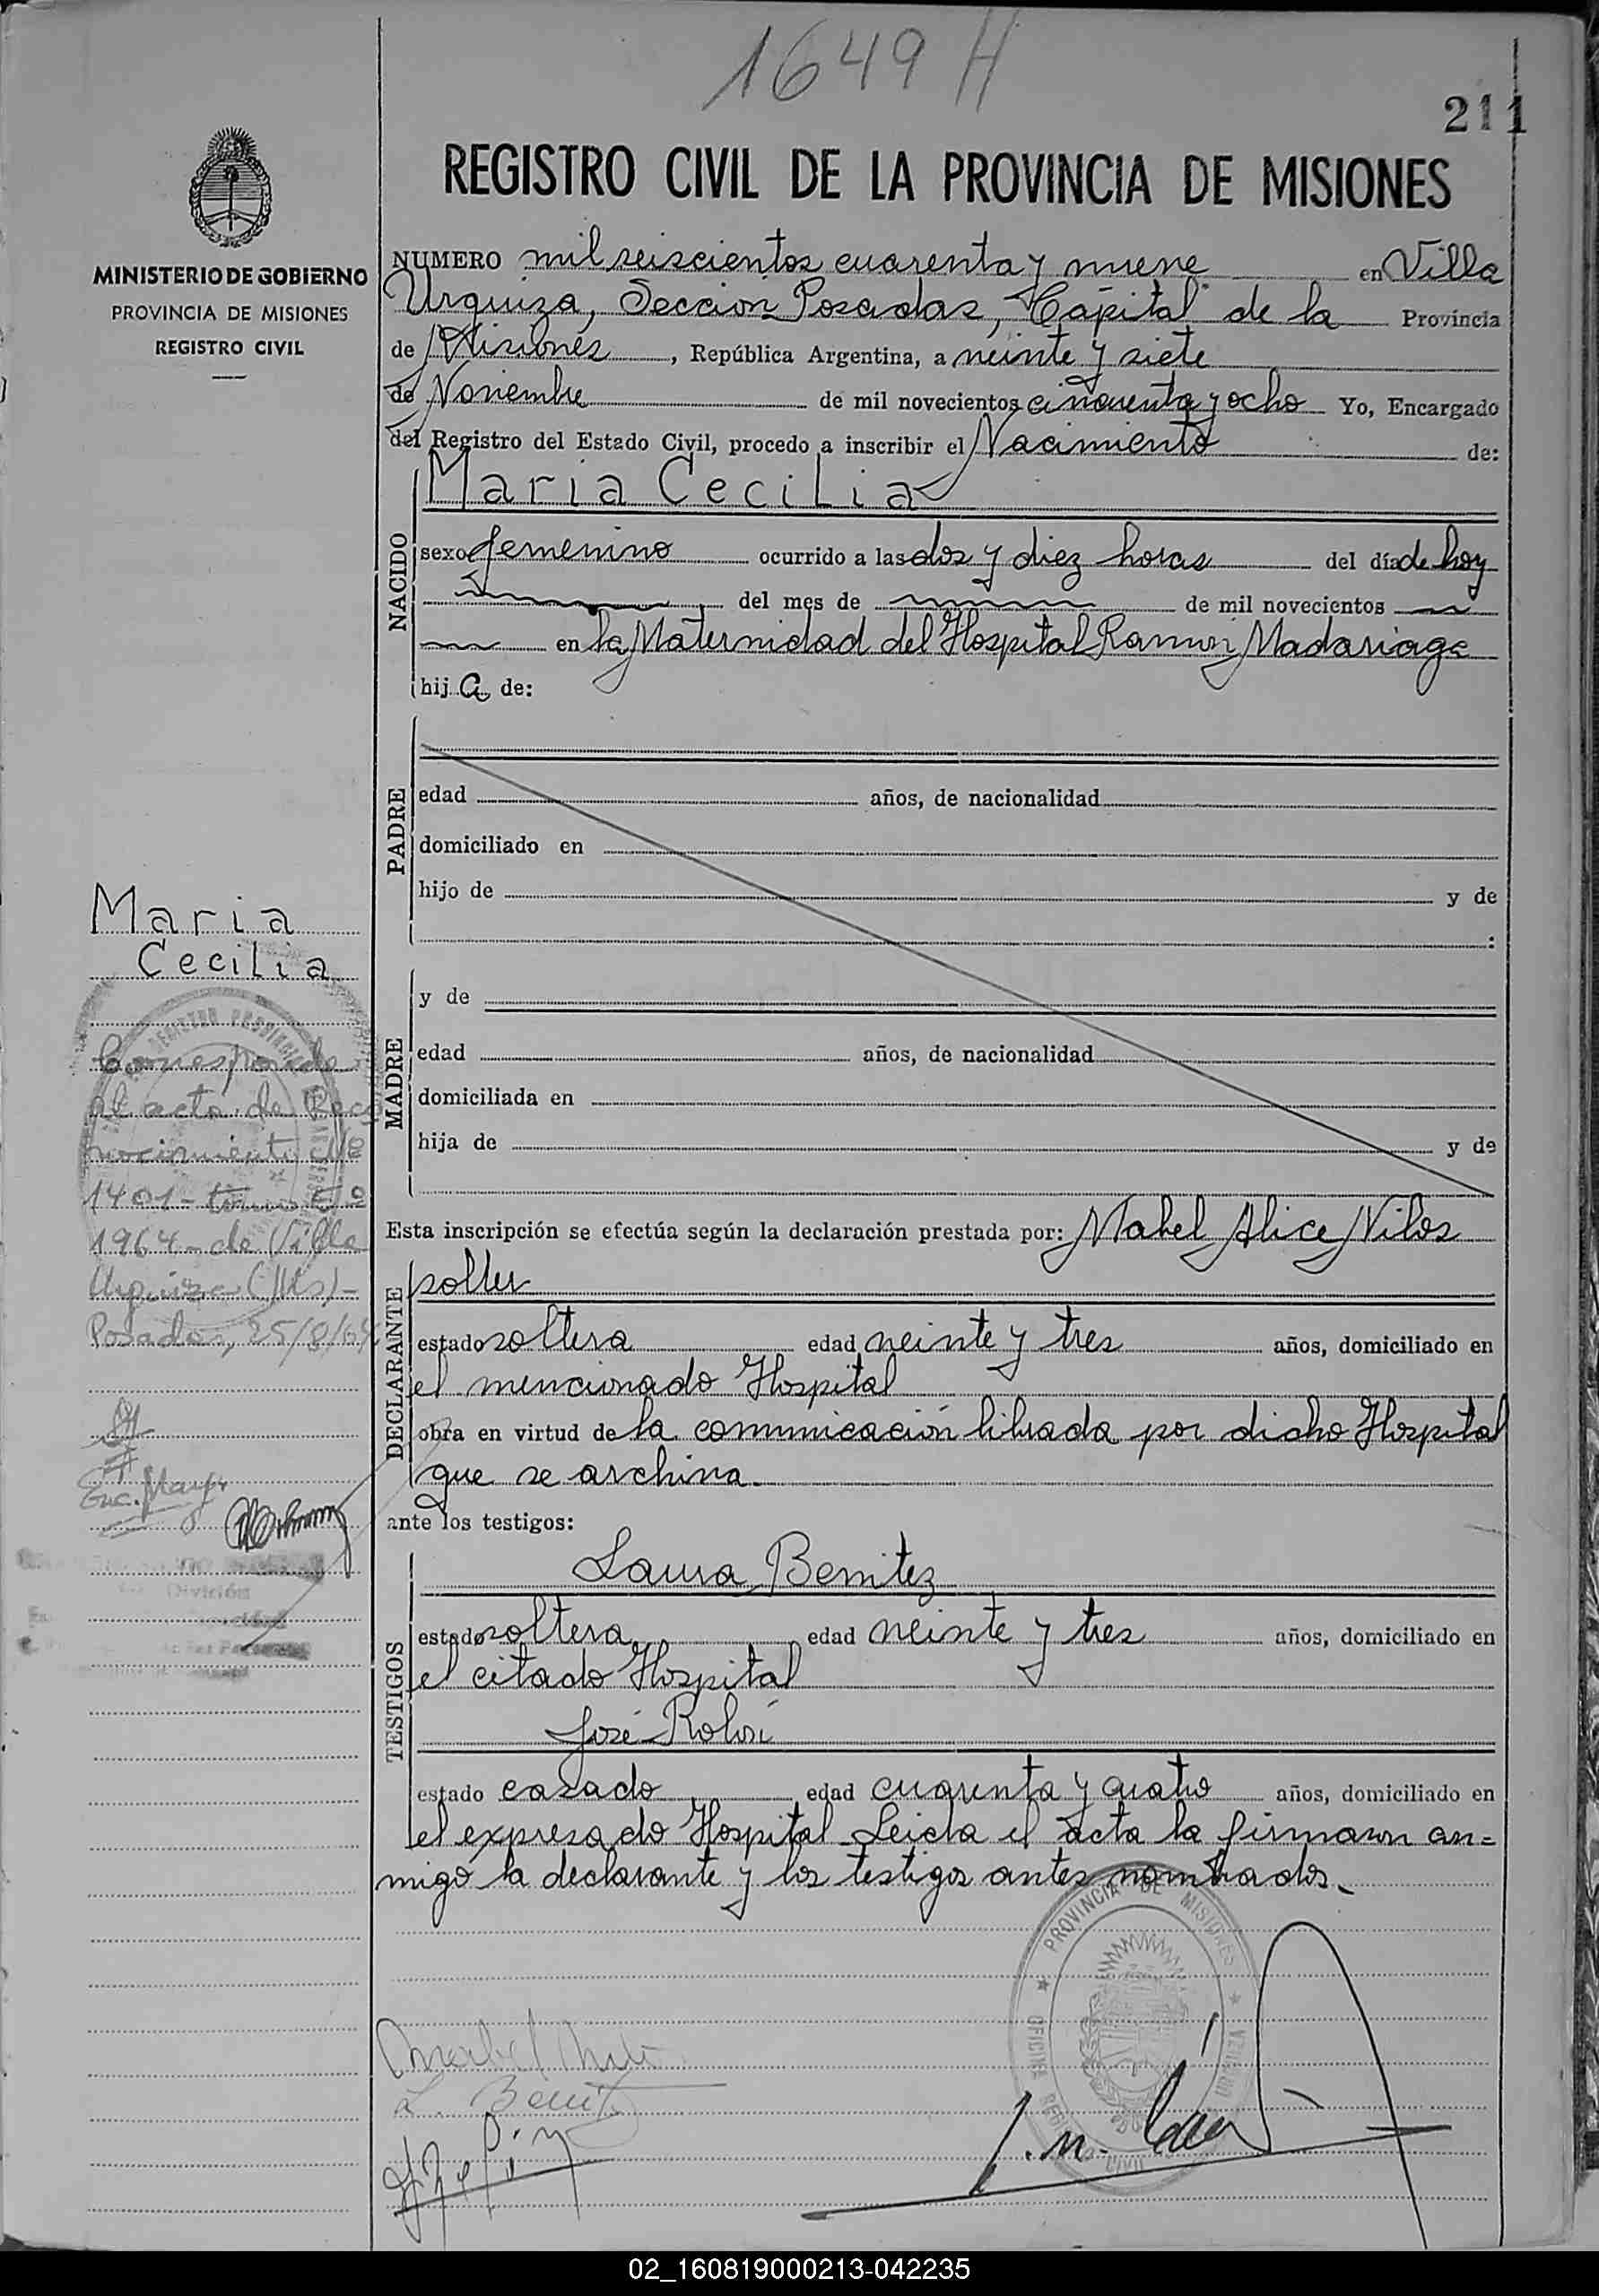 1649 H
211
REGISTRO CIVIL DE LA PROVINCIA DE MISIONES
MINISTERIO DE GOBIERNO
PROVINCIA DE MISIONES
REGISTRO CIVIL
NUMERO mil seiscientos cuarenta y nueve en Villa
Urquiza, Seccion Posadas, Capital de la Provincia
de Misiones, República Argentina, a veinte y siete
de Noviembre de mil novecientos cincuenta y ocho Yo, Encargado
del Registro del Estado Civil, procedo a inscribir el Nacimiento de:
NACIDO
Maria Cecilia
sexo femenino ocurrido a las dos y diez horas del día de hoy
del mes de de mil novecientos
en la Maternidad del Hospital Ramon Madariaga
hija de:
PADRE
edad años, de nacionalidad
domiciliado en
hijo de y de
:
MADRE
y de
edad años, de nacionalidad
domiciliada en
hija de y de
Maria
Cecilia
Corresponde
al acta de Reco
nocimiento Nº
1401 - tomo 5º
1964 - de Villa
Urquiza (Ms) -
Posadas, 25/8/64
Esta inscripción se efectúa según la declaración prestada por: Mabel Alice Nilos
poller
DECLARANTE
estado soltera edad veinte y tres años, domiciliado en
el mencionado Hospital
obra en virtud de la comunicación librada por dicho Hospital
que se archiva.
ante los testigos:
TESTIGOS
Laura Benitez
estado soltera edad veinte y tres años, domiciliado en
el citado Hospital
José Robi
estado casado, edad cuarenta y cuatro años, domiciliado en
el expresado Hospital Leida el acta la firmaron con=
migo la declarante y los testigos antes nombrados.
División
PROVINCIA DE MISIONES
L. Benitez
02_160819000213-042235